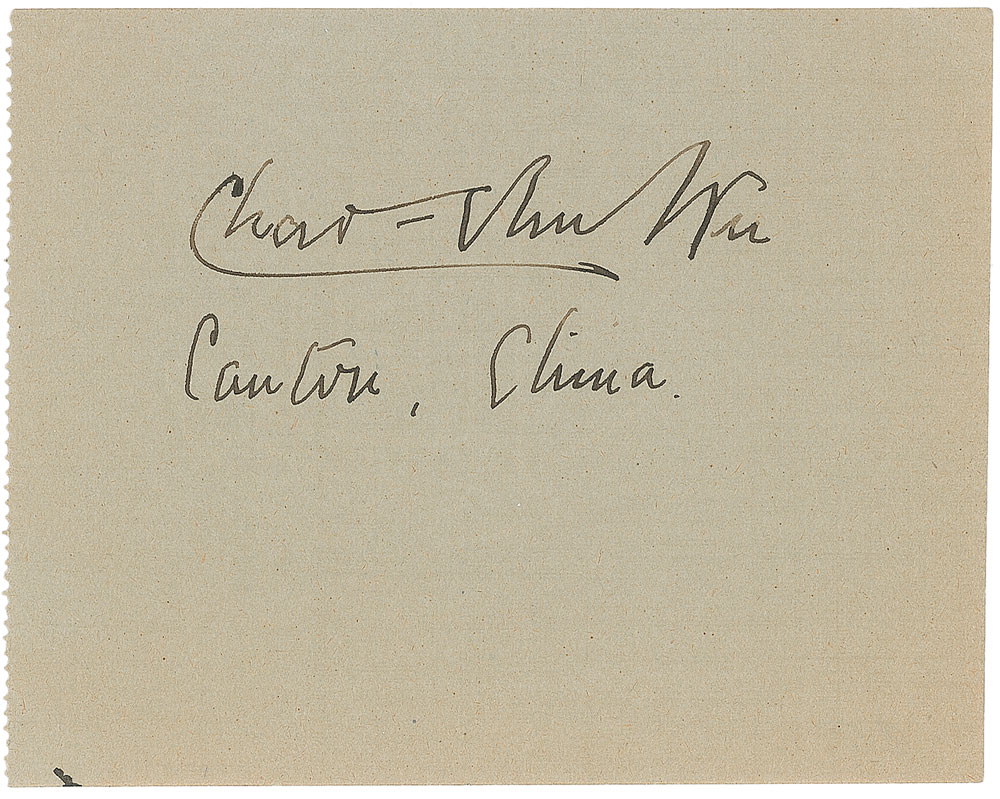 Chao-Chu Wu
Canton, China.